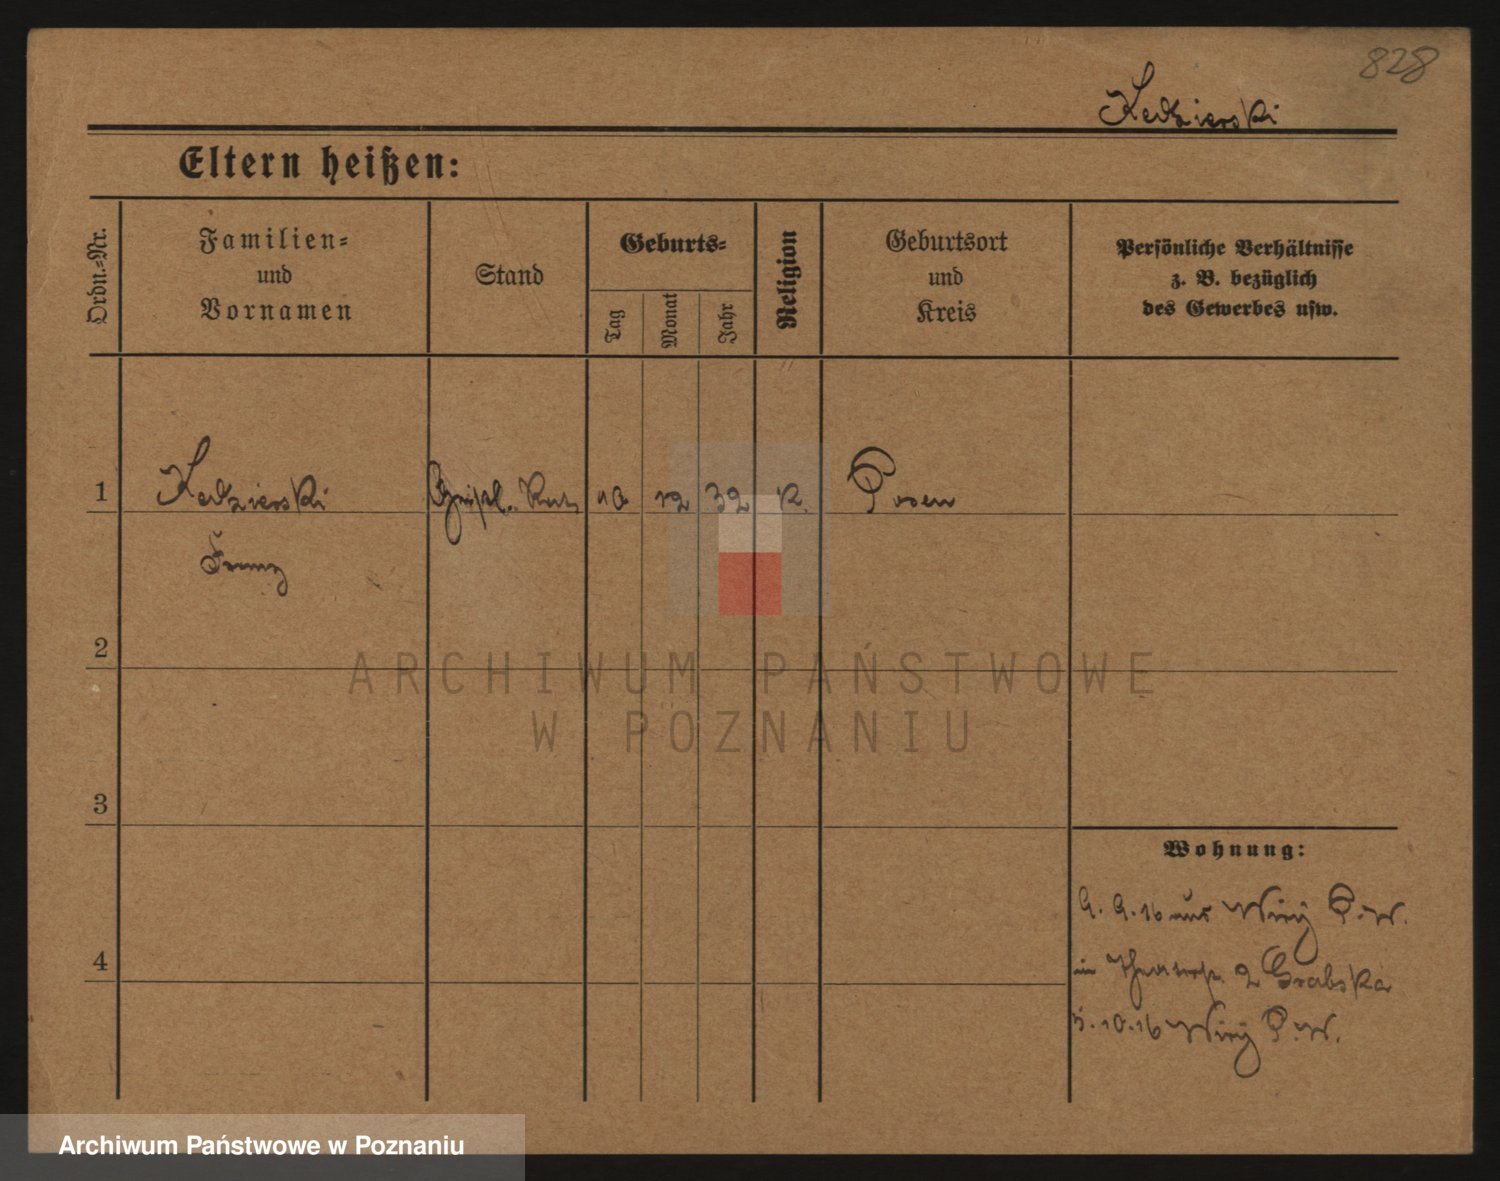 828
Kedzierski
Eltern heißen:
Ordn.-Nr.
Familien-
und
Vornamen
Stand
Geburts-
Tag
Monat
Jahr
Religion
Geburtsort
und
Kreis
Persönliche Verhältnisse
z. B. bezüglich
des Gewerbes usw.
1 Kedzierski 10 12 32 K. Posen
Franz
2
3
4
ARCHIWUM PAŃSTWOWE
W POZNANIU
Wohnung:
9. 9. 16 aus Wiry P.-W.
in Theaterstr. 2 Grabska
10.16 Wiry P.-W.
Archiwum Państwowe w Poznaniu